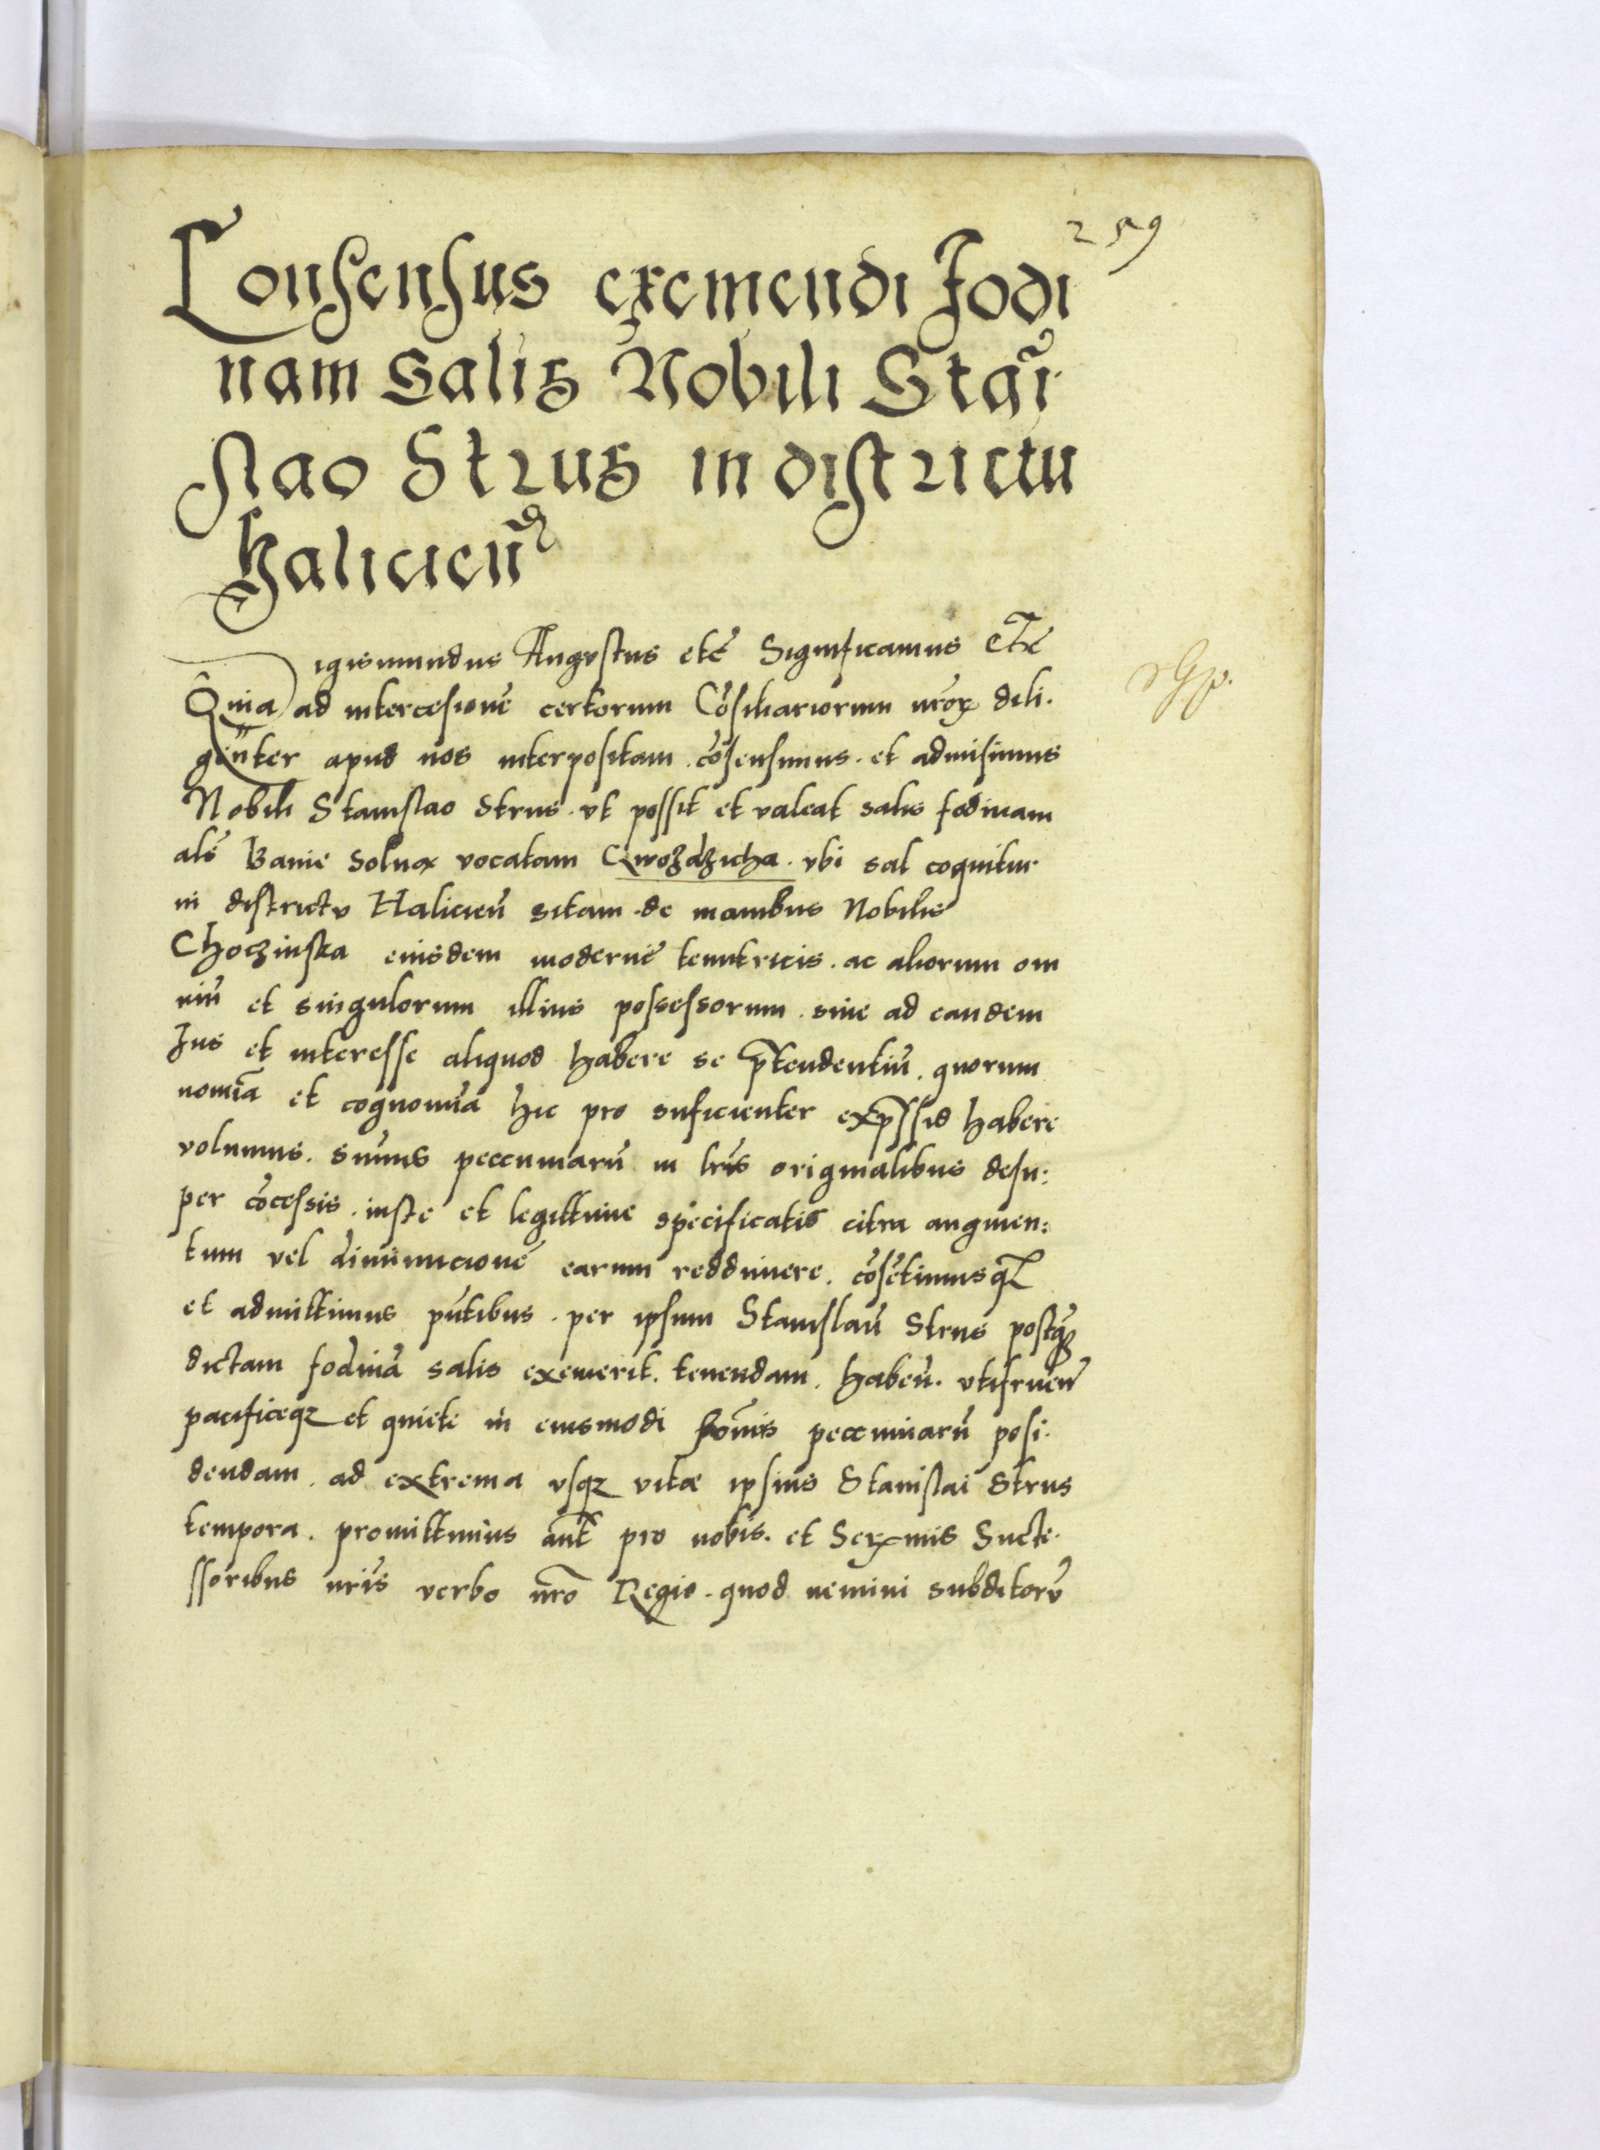 259
Consensus exemendi fodi
nam salis Nobili Stani
slao Strus in districtu
halicien̄
Sigismundus Augustus etc̄ Significamus etc̄
Quia ad intercesionē certorum Cōsiliariorum nr̄orꝝ dili.
genter apud nos interpositam cōsensimus. et admisimus
Nobili Stanislao Strus. vt possit et valeat salis fodinam
als̄ Banie Solnæ vocatam Qwoźdźicha. vbi sal coquitur
in districtv Halicien̄ sitam. de manibus Nobilis
Choczinska eiusdem modernē tenutricis. ac aliorum om
niū et singulorum illius possessorum. siue ad eandem
Jus et interesse aliquod habere se p̄tendentiū. quorum
nomīa et cognomīa hic pro suficienter exp̄ssis habere
volumus. sūmis peccuniarū in lr̄is originalibus desu:
per cōcessis. iuste et legittime specificatis citra augmen:
tum vel diminucionē earum reddimere. cōsētimusqꝫ
et admittimus pn̄tibus. per ipsum Stanislaū Strus postq̄ꝫ
dictam fodinā salis exemerit. tenendam. haben̄. vtifruen̄
pacificeqꝫ et quiete in eiusmodi som̄is peccuniarū posi.
dendam. ad extrema vsqꝫ vitæ ipsius Stanislai Strus
tempora. promittimus aut̄ pro nobis. et Serꝫmis Succe.
ssoribus nr̄is verbo nr̄o Regio. quod nemini subditorū